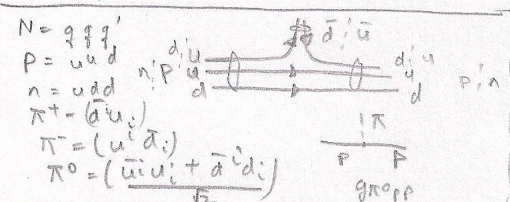 N = q q q'
P = u u d
n = u d d
π⁺ = (d̄ⁱ uᵢ)
π⁻ = (uⁱ d̄ᵢ)
π⁰ = (ūⁱuᵢ + d̄ⁱdᵢ)
√2
d̄ ; ū
d ; u
n ; P u
d
d ; u
u
d
P ; n
π
P P
gπ⁰pp